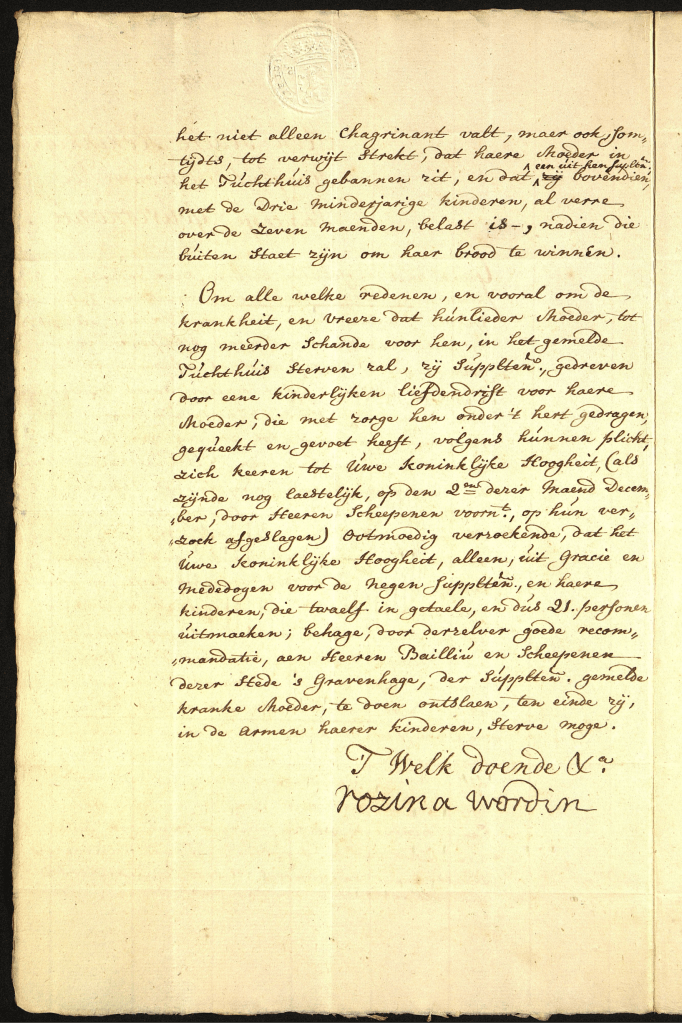 het niet alleen Chagrinant valt, maer ook, som-
tijdts, tot verwijt strekt, dat haere Moeder in
het Tuchthuis gebannen zit, en dat een uit hen Suplten zij bovendien,
met de Drie minderjarige kinderen, al verre
over de zeven maenden, belast is -, nadien die
buiten staet zijn om haer brood te winnen.
Om alle welke redenen, en vooral om de
krankheit, en vreeze dat hunlieder Moeder, tot
nog meerder schande voor hen, in het gemelde
Tuchthuis sterven zal, zij Supplten, gedreven
door eene kinderlijken liefdendrift voor haere
Moeder, die met zorge hen onder 't hert gedragen,
gequeekt en gevoet heeft, volgens hunnen plicht,
zich keeren tot Uwe Koninklijke Hoogheit, (als
zijnde nog laestelijk, op den 2en dezer Maend Decem-
ber, door Heeren Scheepenen voornt., op hun ver-
„zoek afgeslagen) Ootmoedig verzoekende, dat het
Uwe Koninklijke Hoogheit, alleen, uit Gracie en
Mededogen voor de negen Supplten, en haere
kinderen, die twaelf in getaele, en dus 21. personen
uitmaeken; behage, door derzelver goede recom-
„mandatie, aen Heeren Bailliu en Scheepenen
dezer Stede 's Gravenhage, der Supplten. gemelde
kranke Moeder, te doen ontslaen, ten einde zij,
in de armen haerer kinderen, sterve moge.
T Welk doende &a.
rozina wordin